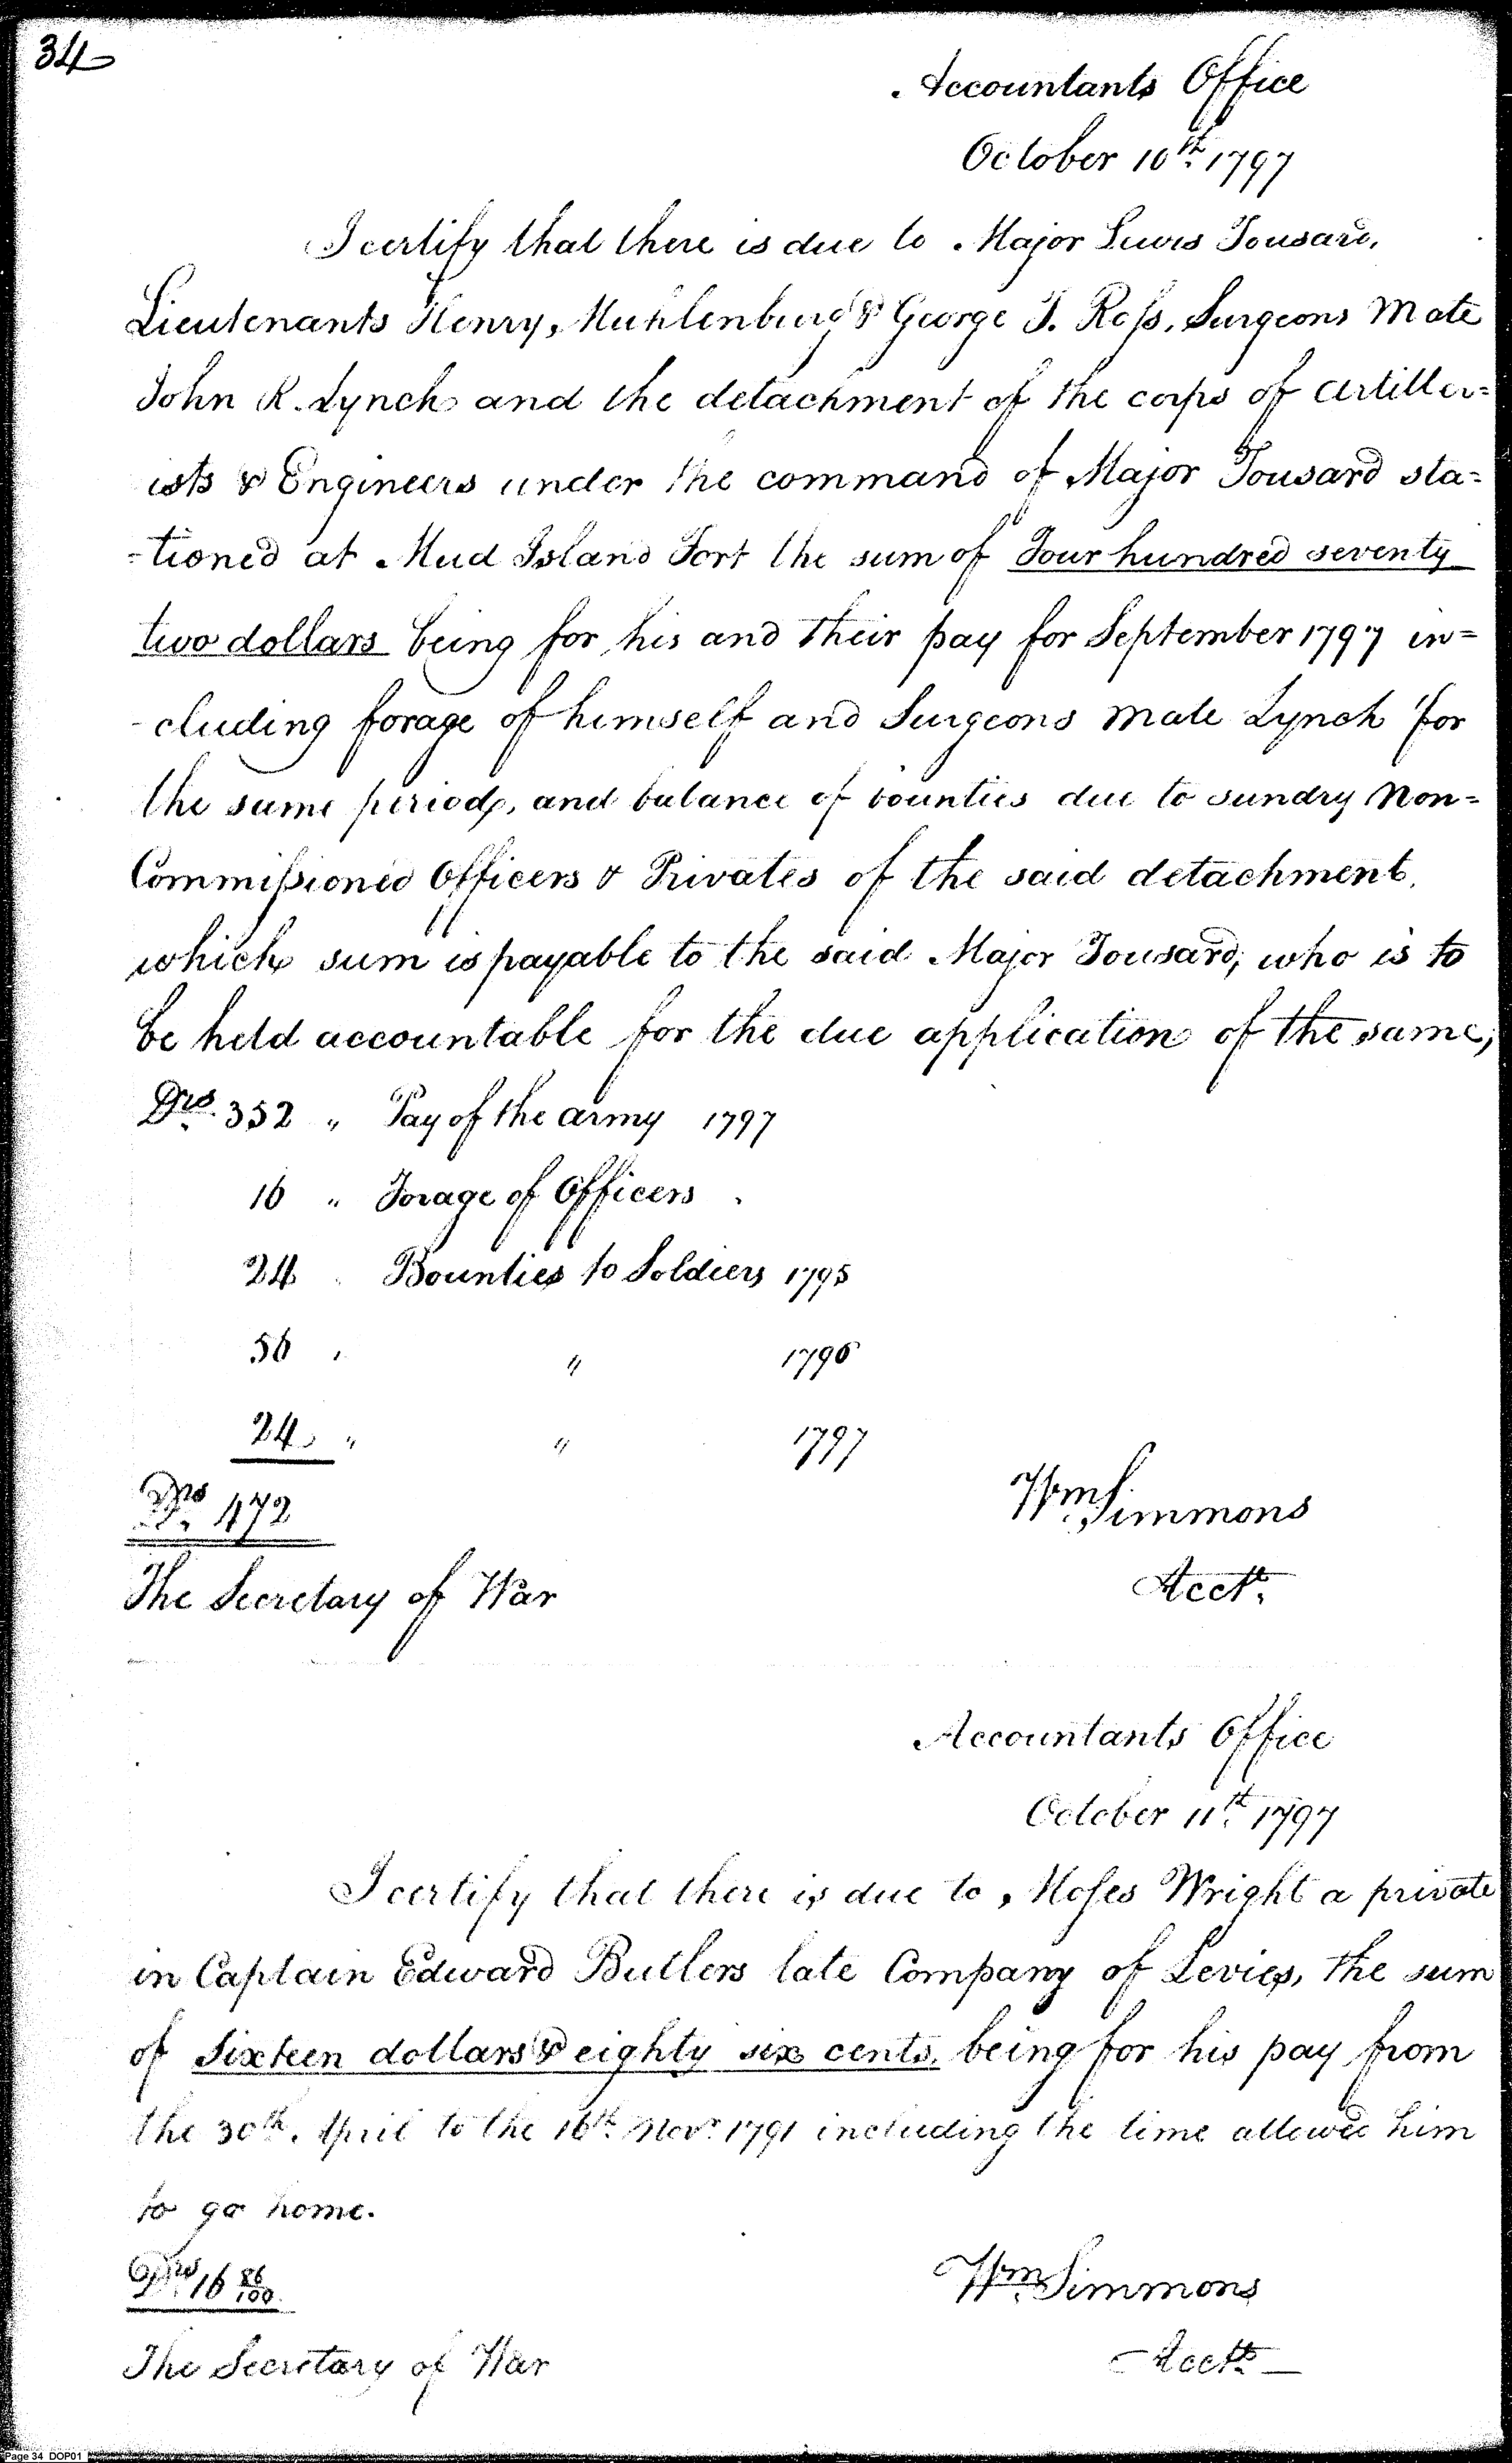 34
Accountants Office
October 10th. 1797
I certify that there is due to Major Lewis Tousard,
Lieutenants Henry, Muhlenburg & George T. Ross, Surgeons Mate
John R. Lynch and the detachment of the corps of Artiller=
ists & Engineers under the command of Major Tousard sta=
=tioned at Mud Island Fort the sum of Four hundred seventy
two dollars being for his and their pay for September 1797 in=
-cluding forage of himself and Surgeons Mate Lynch for
the same period, and balance of bounties due to sundry Non=
Commissioned Officers & Privates of the said detachment,
which sum is payable to the said Major Tousard, who is to
be held accountable for the due application of the same,
Drs. 352 " Pay of the army 1797
16 " Forage of Officers "
24 " Bounties to Soldiers 1795
56 " " 1796
24 " " 1797
Drs. 472
Wm. Simmons
Acctt.
The Secretary of War
Accountants Office
October 11th. 1797
I certify that there is due to, Moses Wright a private
in Captain Edward Butlers late Company of Levies, the sum
of Sixteen dollars & eighty six cents, being for his pay from
the 30th. April to the 16th. Novr. 1791 including the time allowed him
to go home.
Drs. 16 86/100
Wm. Simmons
Acctt.
The Secretary of War
Page 34 DOP01